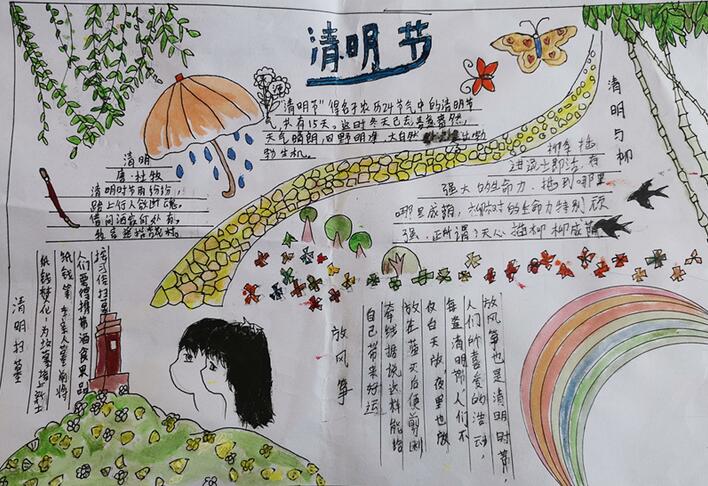 清明节
"清明节"得名于农历24节气中的清明节
气,共有15天。这时冬天已去春意盎然,
天气晴朗,四野明净,大自然出勃
勃生机。
清明
唐·杜牧
清明时节雨纷纷,
路上行人欲断魂。
借问酒家何处有,
牧童遥指杏花村。
清明与柳
柳条插
进土立即活,有
强大的生命力,插到哪里
哪里成荫,柳树的生命力特别顽
强,正所谓:无心插柳柳成荫
清明扫墓
按习俗扫墓
人们要携带酒食果品
纸钱等亲人墓前将
纸钱焚化,为坟墓培上新土
放风筝
放风筝也是清明时节,
人们所喜爱的活动,
每逢清明节,人们不
仅白天放,夜里也放
放在蓝天后便剪断
牵线据说这样能给
自己带来好运